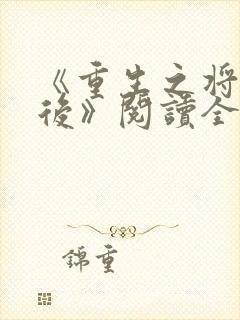 《重生之将
後》閱讀全
錦重